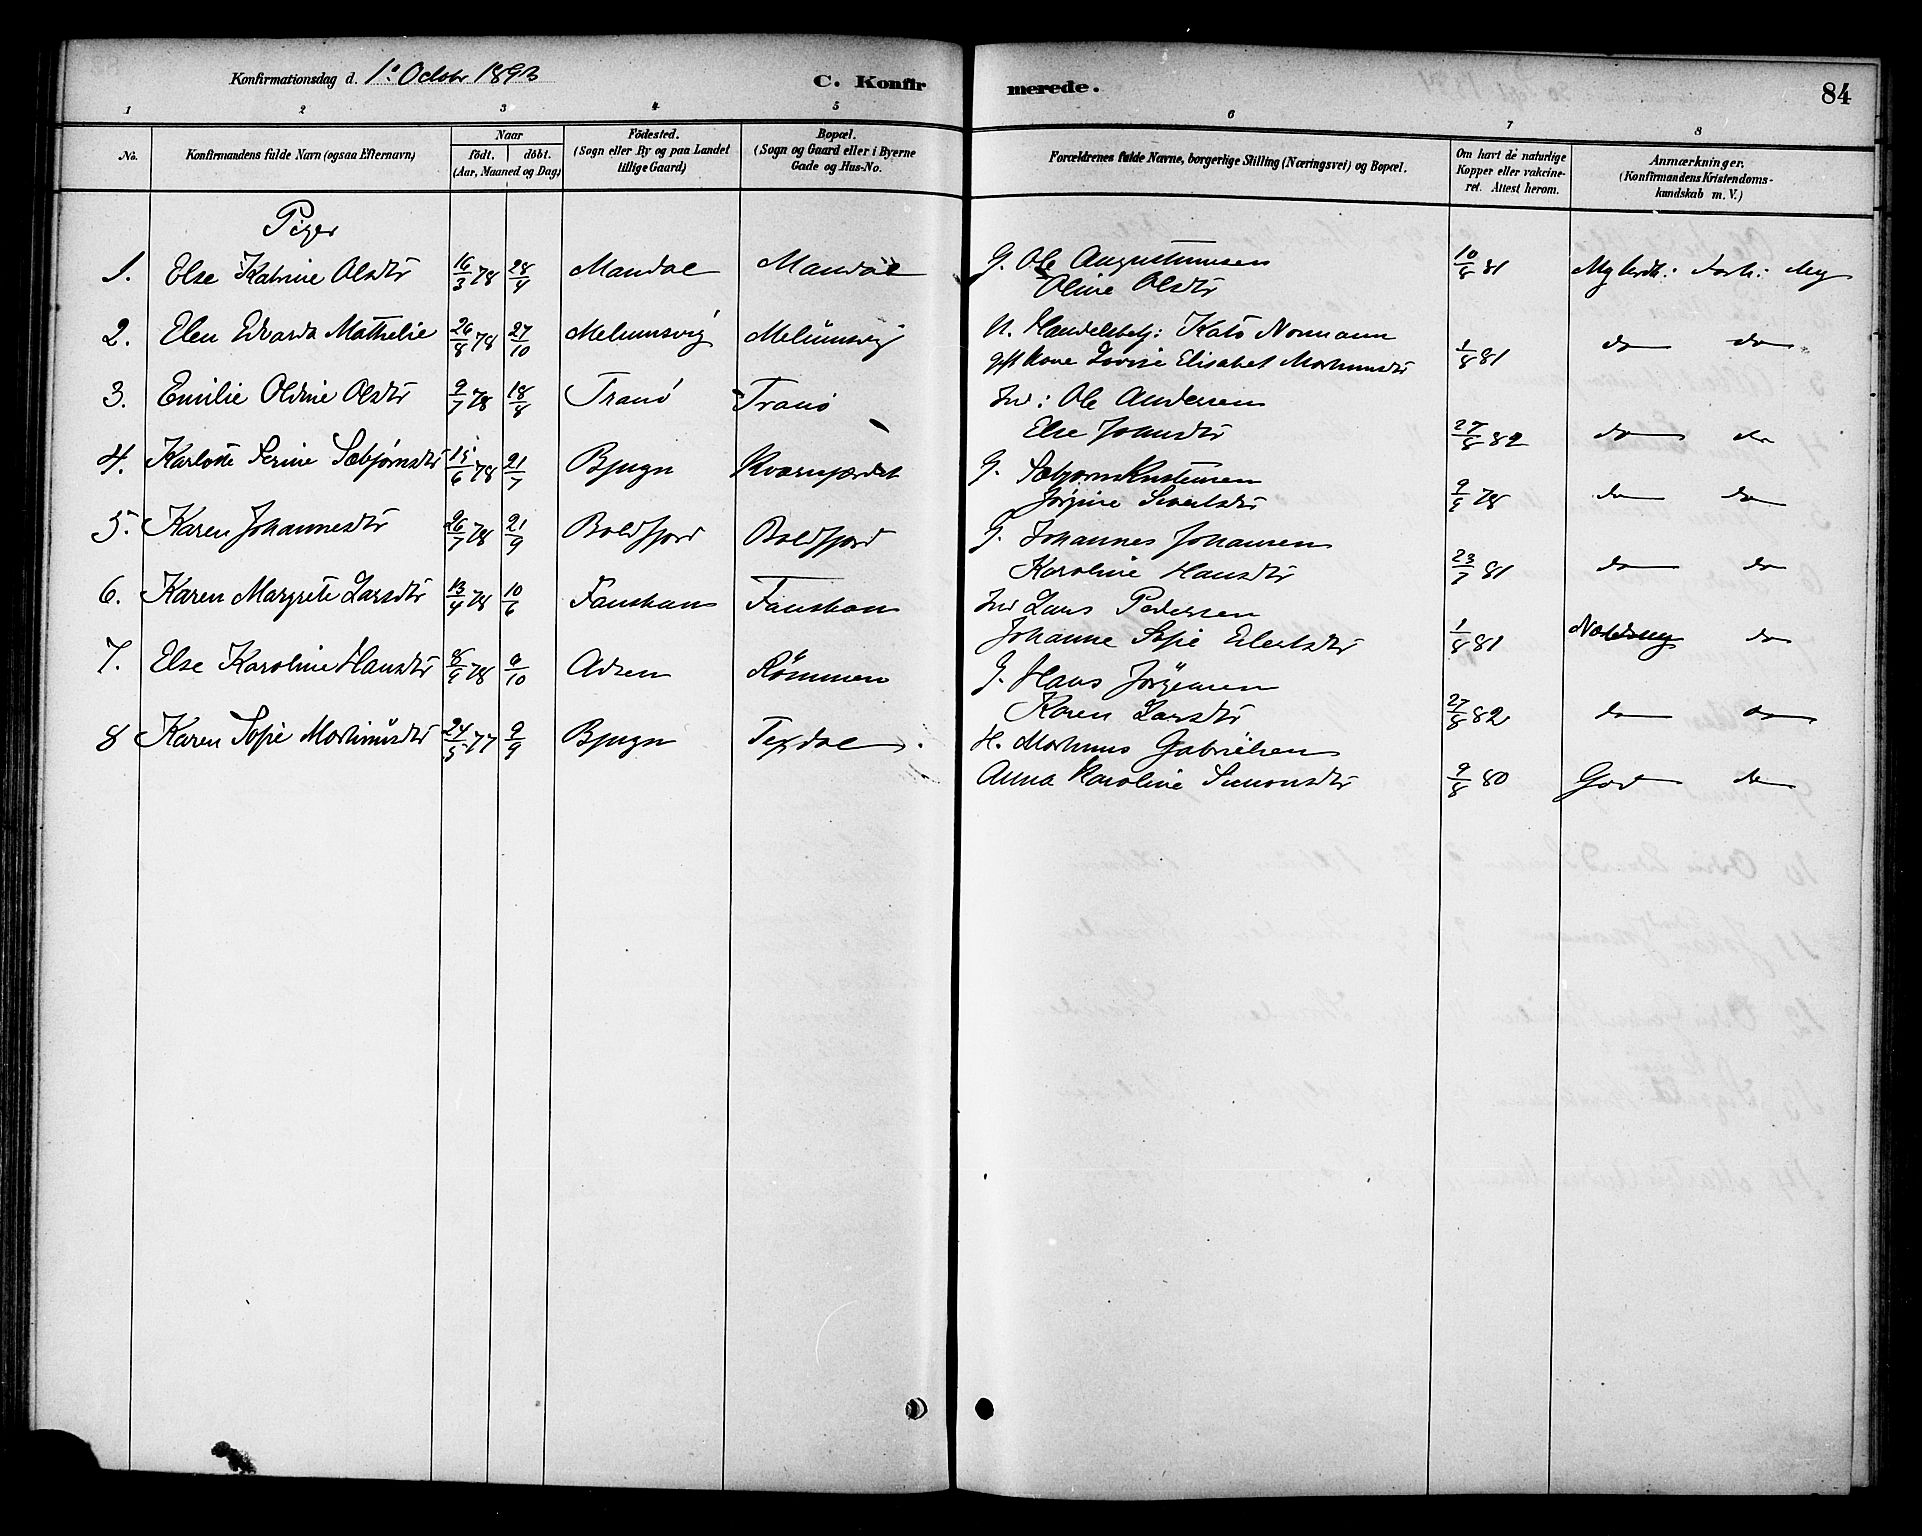 Konfirmationsdag d. 1ᵉ Octobr 1893
C. Konfirmerede.
84
1 2 3 4 5 6 7 8
No.
Konfirmandens fulde Navn (ogsaa Efternavn)
Naar
födt. döbt.
(Aar, Maaned og Dag)
Födested.
(Sogn eller By og paa Landet tillige Gaard)
Bopæl.
(Sogn og Gaard eller i Byerne Gade og Hus-No.
Forældrenes fulde Navne, borgerlige Stilling (Næringsvei) og Bopæl.
Om havt de naturlige Kopper eller vakcineret. Attest herom.
Anmærkninger.
(Konfirmandens Kristendomskundskab m. V.)
Piger
1. Else Katrine Olsdtr 16/3 78 28/4 Mandal Mandal G. Ole Augustinusen
Oline Olsdtr 10/8 81
2. Elen Edvarda Mathelie 26/8 78 27/10 Melumsvig Melumsvig U. Handelsbetj: Kato Normann
gift Kone Lovise Elisabet Mortinusdtr 1/8 81 do do
3. Emilie Oldine Olsdtr 9/7 78 18/8 Tranö Tranö Ind: Ole Andersen
Else Johnsdtr 27/8 82 do do
4. Karlotte Serine Sæbjørnsdtr 15/6 78 21/7 Bjugn Kværnfjærdet G. Sæbjørn Kristensen
Jørgine Sivertsdtr 78 do do
5. Karen Johannesdtr 26/7 78 21/9 Boldfjord Boldfjord G. Johannes Johansen
Karoline Hansdtr 23/7 81 do do
6. Karen Margrete Larsdtr 13/4 78 10/6 Fanskan Fanskan Ind Lars Pedersen
Johanne Sofie Eilertsdtr 1/8 81 do
7. Else Karoline Hansdtr 78 10 Adsen Rømmen G. Hans Jörgensen
Karen Larsdtr 27/8 82 do do
8 Karen Sofie Mortinusdtr 24/5 77 9/9 Bjugn Texdal H. Mortinus Gabrielsen
Anna Karoline Simonsdtr 9/8 80 God do